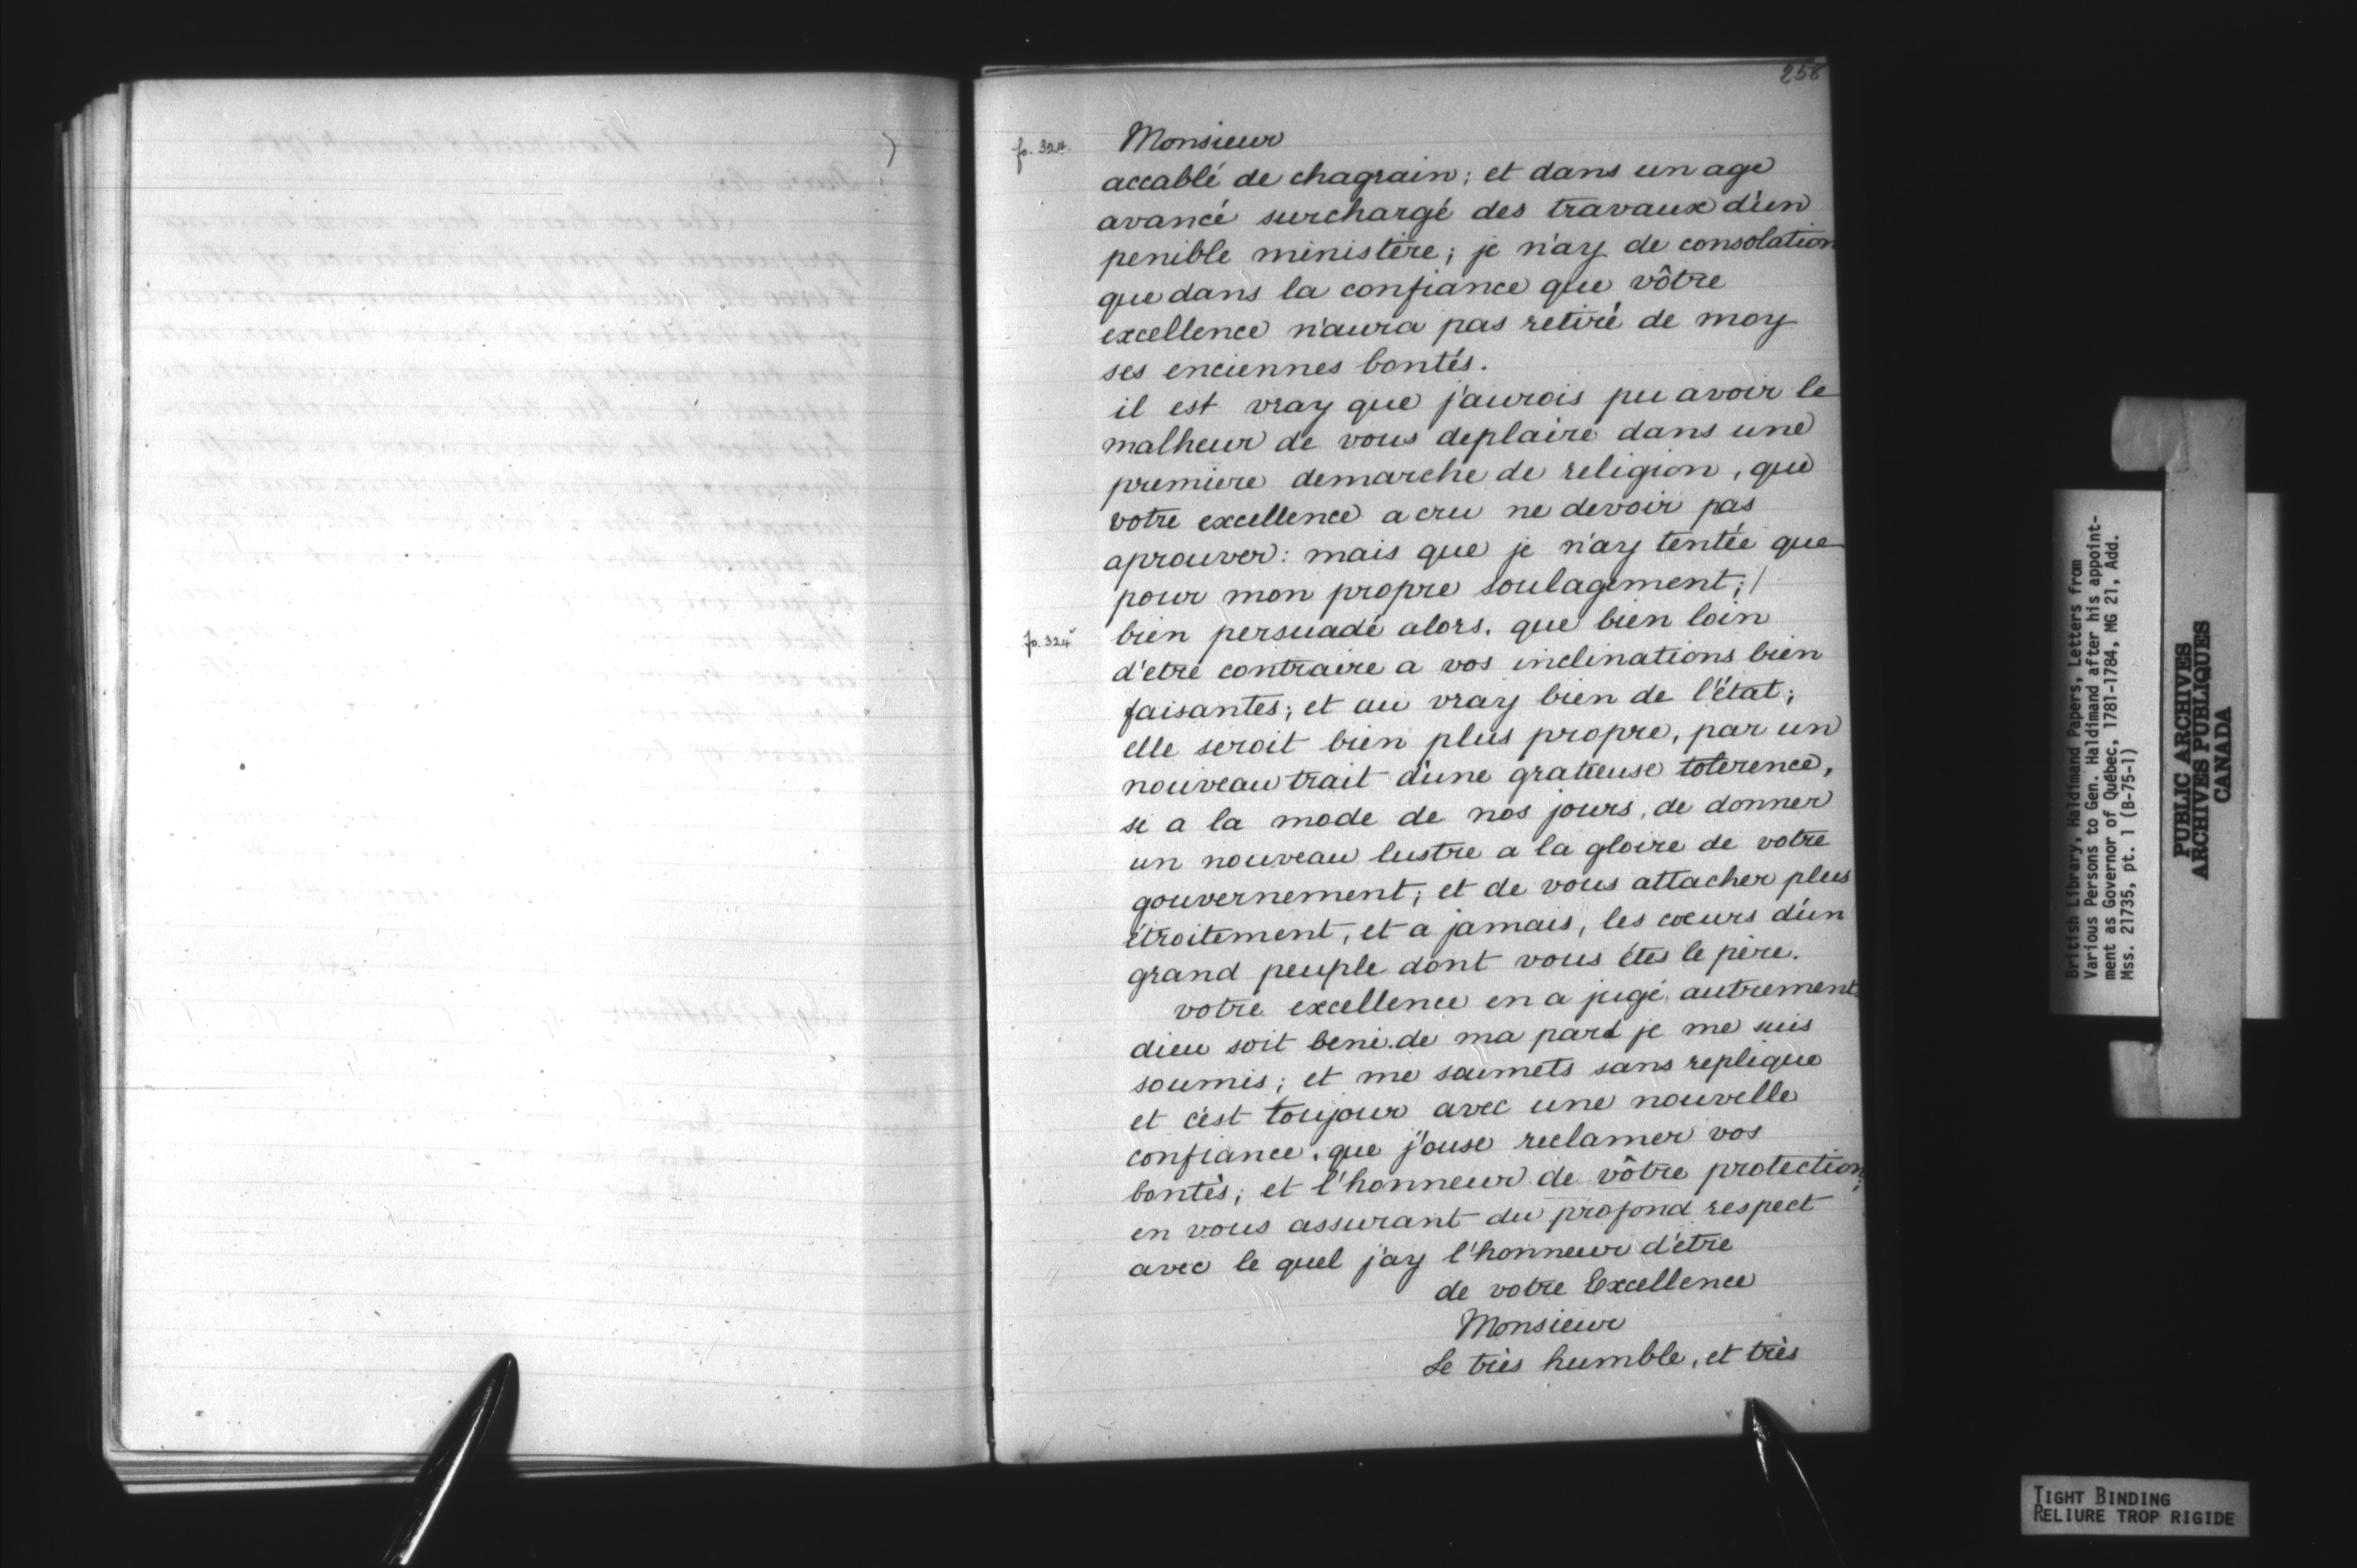 258
fo. 324.
Monsieur
accablé de chagrain; et dans un age
avancé surchargé des travaux d'un
penible ministère; je n'ay de consolation
que dans la confiance que vôtre
excellence n'aura pas retiré de moy
ses enciennes bontés.
il est vray que j'aurois pu avoir le
malheur de vous deplaire dans une
premiere demarche de religion, que
votre excellence a cru ne devoir pas
aprouver: mais que je n'ay tentée que
pour mon propre soulagement; /
fo. 324v
bien persuadé alors, que bien loin
d'etre contraire a vos inclinations bien
faisantes; et au vray bien de l'état;
elle seroit bien plus propre, par un
nouveau trait d'une gratieuse tolerence,
si a la mode de nos jours, de donner
un nouveau lustre a la gloire de votre
gouvernement; et de vous attacher plus
étroitement, et a jamais, les coeurs d'un
grand peuple dont vous étes le père.
votre excellence en a jugé autrement.
dieu soit beni. de ma part je me suis
soumis; et me soumets sans replique
et c'est toujour avec une nouvelle
confiance, que j'ouse reclamer vos
bontés; et l'honneur de vôtre protection;
en vous assurant du profond respect
avec le quel j'ay l'honneur d'etre
de votre Excellence
Monsieur
Le très humble, et très
British Library, Haldimand Papers, Letters from
Various Persons to Gen. Haldimand after his appoint-
ment as Governor of Québec, 1781-1784, MG 21, Add.
Mss. 21735, pt. 1 (B-75-1)
PUBLIC ARCHIVES
ARCHIVES PUBLIQUES
CANADA
TIGHT BINDING
RELIURE TROP RIGIDE